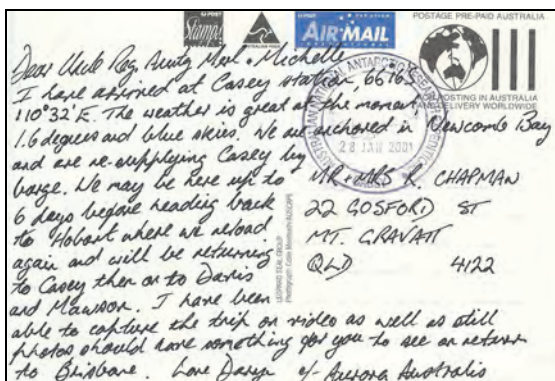 Stamps
AIR MAIL
POSTAGE PRE-PAID AUSTRALIA
FOR POSTING IN AUSTRALIA
AND DELIVERY WORLDWIDE
Dear Uncle Reg, Aunty Merl + Michelle
I have arrived at Casey station, 66°16'S
110°32'E. The weather is great at the moment
1.6 degrees and blue skies. We are anchored in Newcomb Bay
and are re-supplying Casey by
barge. We may be here up to
6 days before heading back
to Hobart where we reload
again and will be returning
to Casey then on to Davis
and Mawson. I have been
able to capture the trip on video as well as still
photos should have something for you to see on return
to Brisbane. Love Daryn c/- Aurora Australis
28 JAN 2001
MR + MRS R. CHAPMAN
22 GOSFORD ST
MT. GRAVATT
QLD 4122
LEOPARD SEAL GROUP